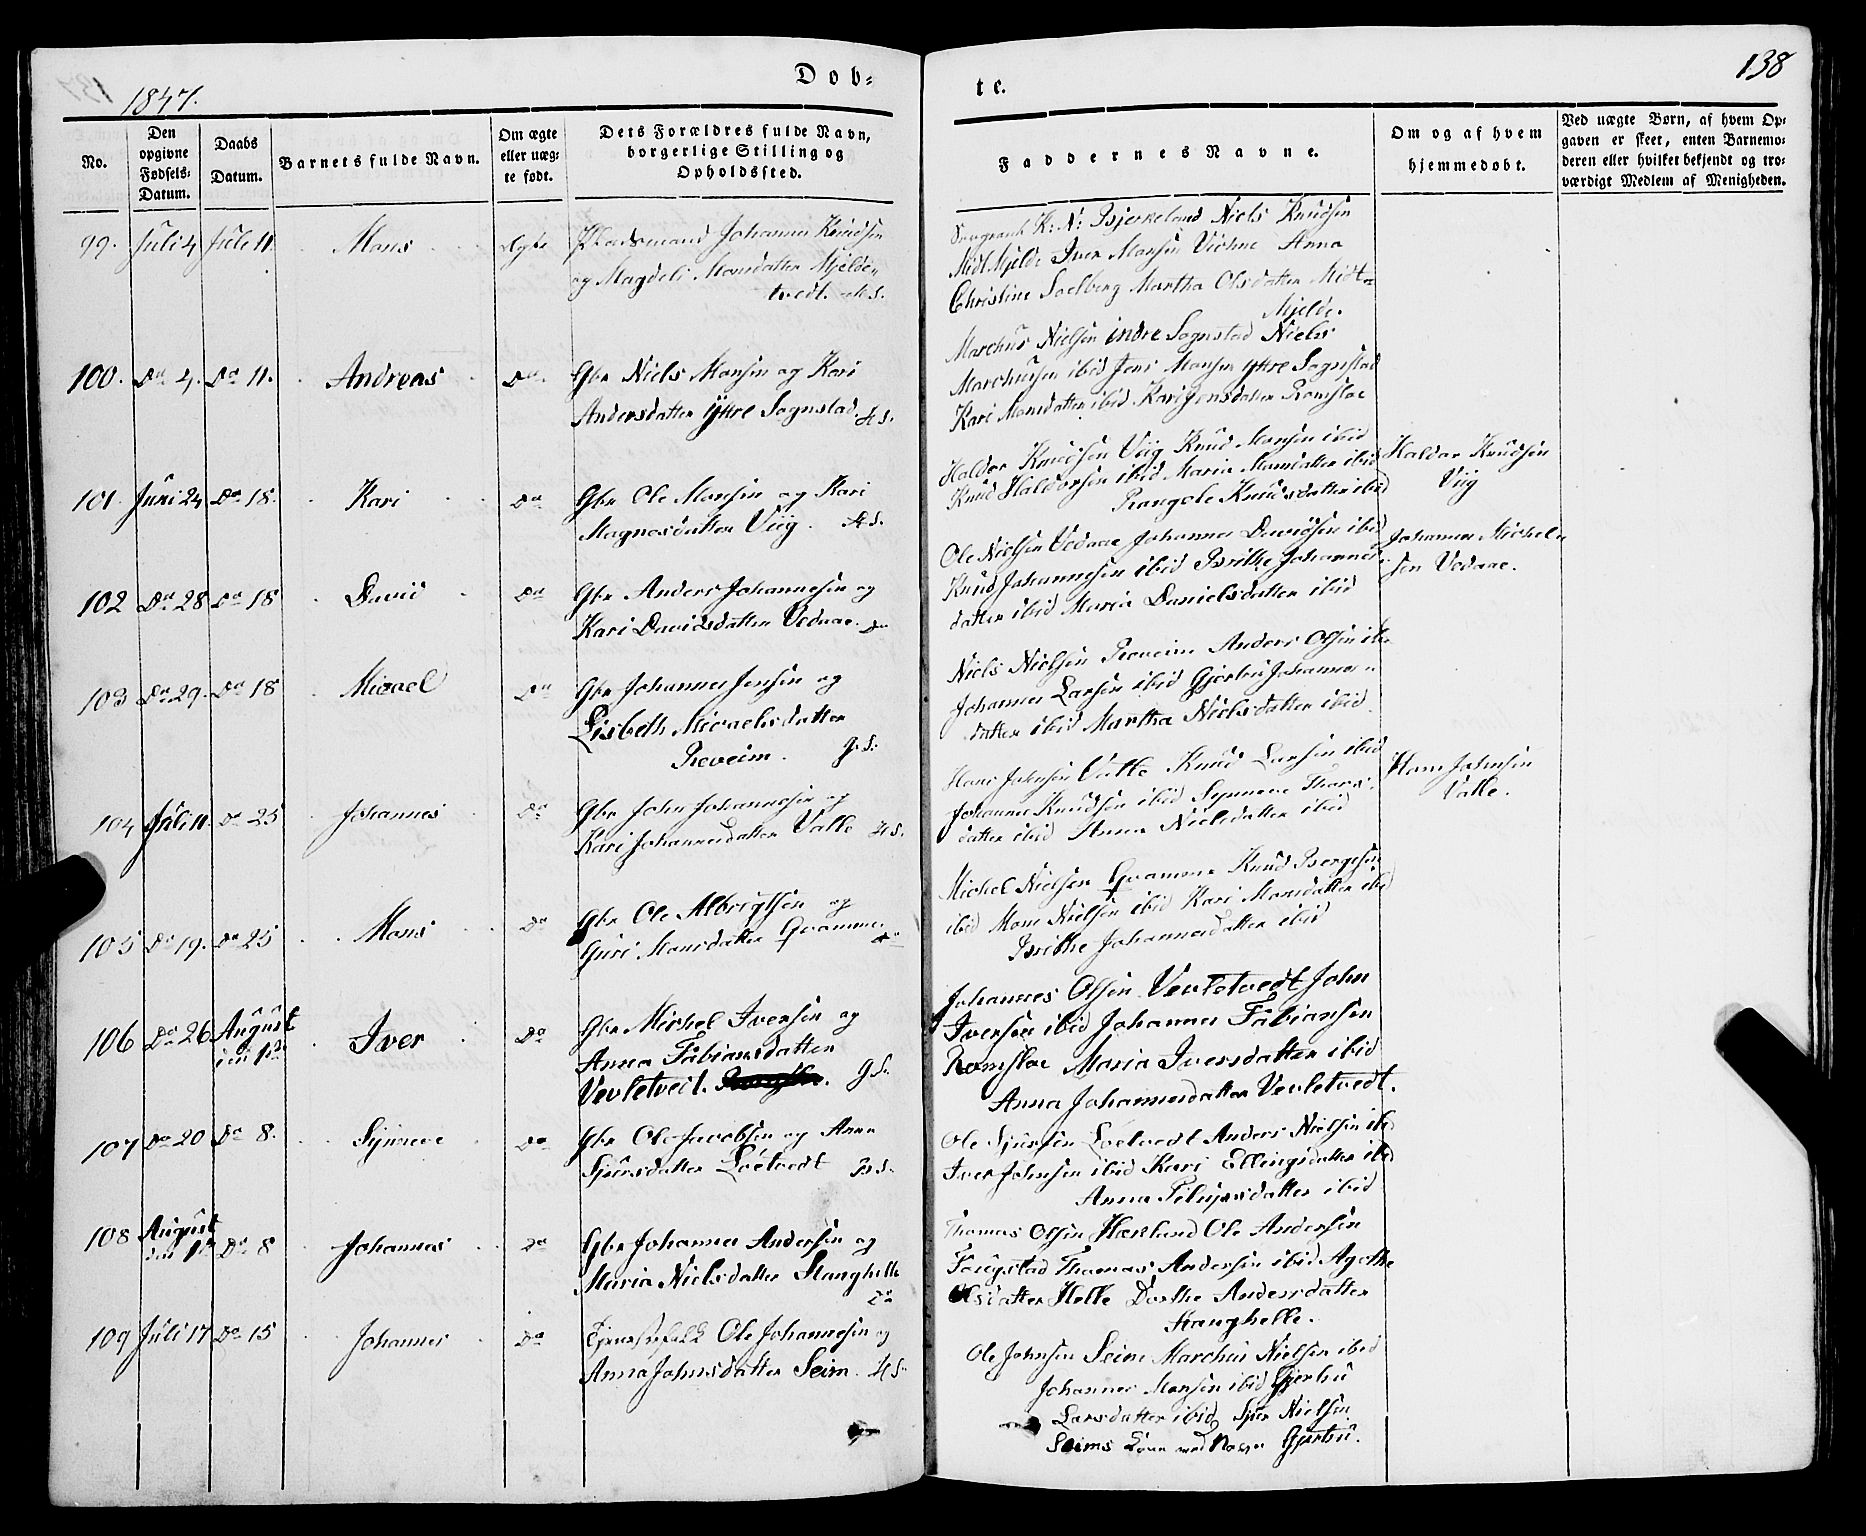 1847.
Døb-
te.
138
No.
Den
opgivne
Fødsels-
Datum.
Daabs
Datum.
Barnets fulde Navn.
Om ægte
eller uæg-
te født.
Dets Forældres fulde Navn,
borgerlige Stilling og
Opholdssted.
Faddernes Navne.
Om og af hvem
hjemmedøbt.
Ved uægte Børn, af hvem Op-
gaven er skeet, enten Barnemo-
deren eller hvilket bekjendt og tro-
værdigt Medlem af Menigheden.
99. Juli 4 Juli 11. Mons Ægte Pladsmand Johannes Knudsen
og Magdeli Monsdatter Mjelde-
tvedt. H.S.
K: N: Bjerkeland Niels Knudsen
Midt Mjelde Iver Monsen Anna
Christine Soelberg Martha Olsdatter Midt-
Mjelde.
100. Do 4. Do 11. Andreas Do Gbr Niels Monsen og Kari
Andersdatter Yttre Sognstad. H.S.
Marchus Nielsen indre Sognstad Niels
Marchusen ibid Jens Monsen yttre Sognstad
Kari Monsdatter ibid Kari Jensdatter Romsloe
101. Juni 24 Do 18. Kari Do Gbr Ole Monsen og Kari
Magnesdatter Viig. H.S.
Haldor Knudsen Viig Knud Monsen ibid
Knud Haldorsen ibid Maria Monsdatter ibid
Rangele Knudsdatter ibid
Haldor Knudsen
Viig
102 Do 28 Do 18 David Do Gbr Anders Johannesen og
Kari Davidsdatter Vedaae. Do
Ole Nielsen Vedaae Johannes Davidsen ibid
Knud Johannesen ibid Brithe Johannes-
datter ibid Maria Danielsdatter ibid
Johannes Michel-
sen Vedaae.
103 Do 29. Do 18 Micael Do Gbr Johannes Jensen og
Lisbeth Micaelsdatter
Reveim. G.S.
Niels Nielsen Reveim Anders Olsen ibid
Johannes Larsen ibid Gjertru Johannes-
datter ibid Martha Nielsdatter ibid
104 Juli 11. Do 25 Johannes Do Gbr John Johannesen og
Kari Johannesdatter Valle H.S.
Hans Johnsen Valle Knud Larsen ibid
Johannes Knudsen ibid Synneve
datter ibid Anna Nielsdatter ibid
Hans Johnsen
Valle.
105 Do 19. Do 25 Mons Do Gbr Ole Albrigtsen og
Guri Monsdatter Qvamme. Do
Michel Nielsen Qvamme Knud Børgesen
ibid Mons Nielsen ibid Kari Monsdatter ibid
Brithe Johannesdatter ibid
106 Do 26 August
den 1ste Iver Do Gbr Michel Iversen og
Anna Fabiansdatter
Vevletvedt. G.S.
Johannes Olsen Vevletvedt John
Iversen ibid Johannes Fabiansen
Romsloe Maria Iversdatter ibid
Anna Johannesdatter Vevletvedt.
107 Do 20 Do 8. Synneve Do Gbr Ole Jacobsen og Anna
Sjursdatter Loëtvedt B.S.
Ole Sjursen Loëtvedt Anders Nielsen ibid
Iver Johnsen ibid Kari Ellingsdatter ibid
Anna ibid
108 August
den 1 Do 8 Johannes Do Gbr Johannes Andersen og
Maria Nielsdatter Stanghelle
Do
Thomas Olsen Ole Andersen
Fougstad Thomas Andersen ibid Agethe
Olsdatter Helle Dorthe Andersdatter
Stanghelle.
109 Juli 17 Do 15 Johannes Do Tjenestefolk Ole Johannesen og
Anna Johnsdatter Seim. H.S.
Ole Johnsen Seim Marchus Nielsen ibid
Johannes Monsen ibid Gjertru
Larsdatter ibid Sjur Nielsen
Seims Kone ved Navn Gjertru.